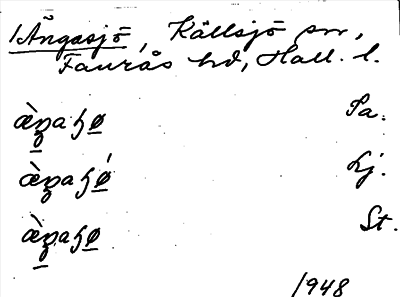 1 Ängasjö, Källsjö sn,
Faurås hd, Hall. l.
æ̀ŋaɧø Pa.
æ̀ŋaɧǿ Lj.
æ̀ŋaɧø St.
1948